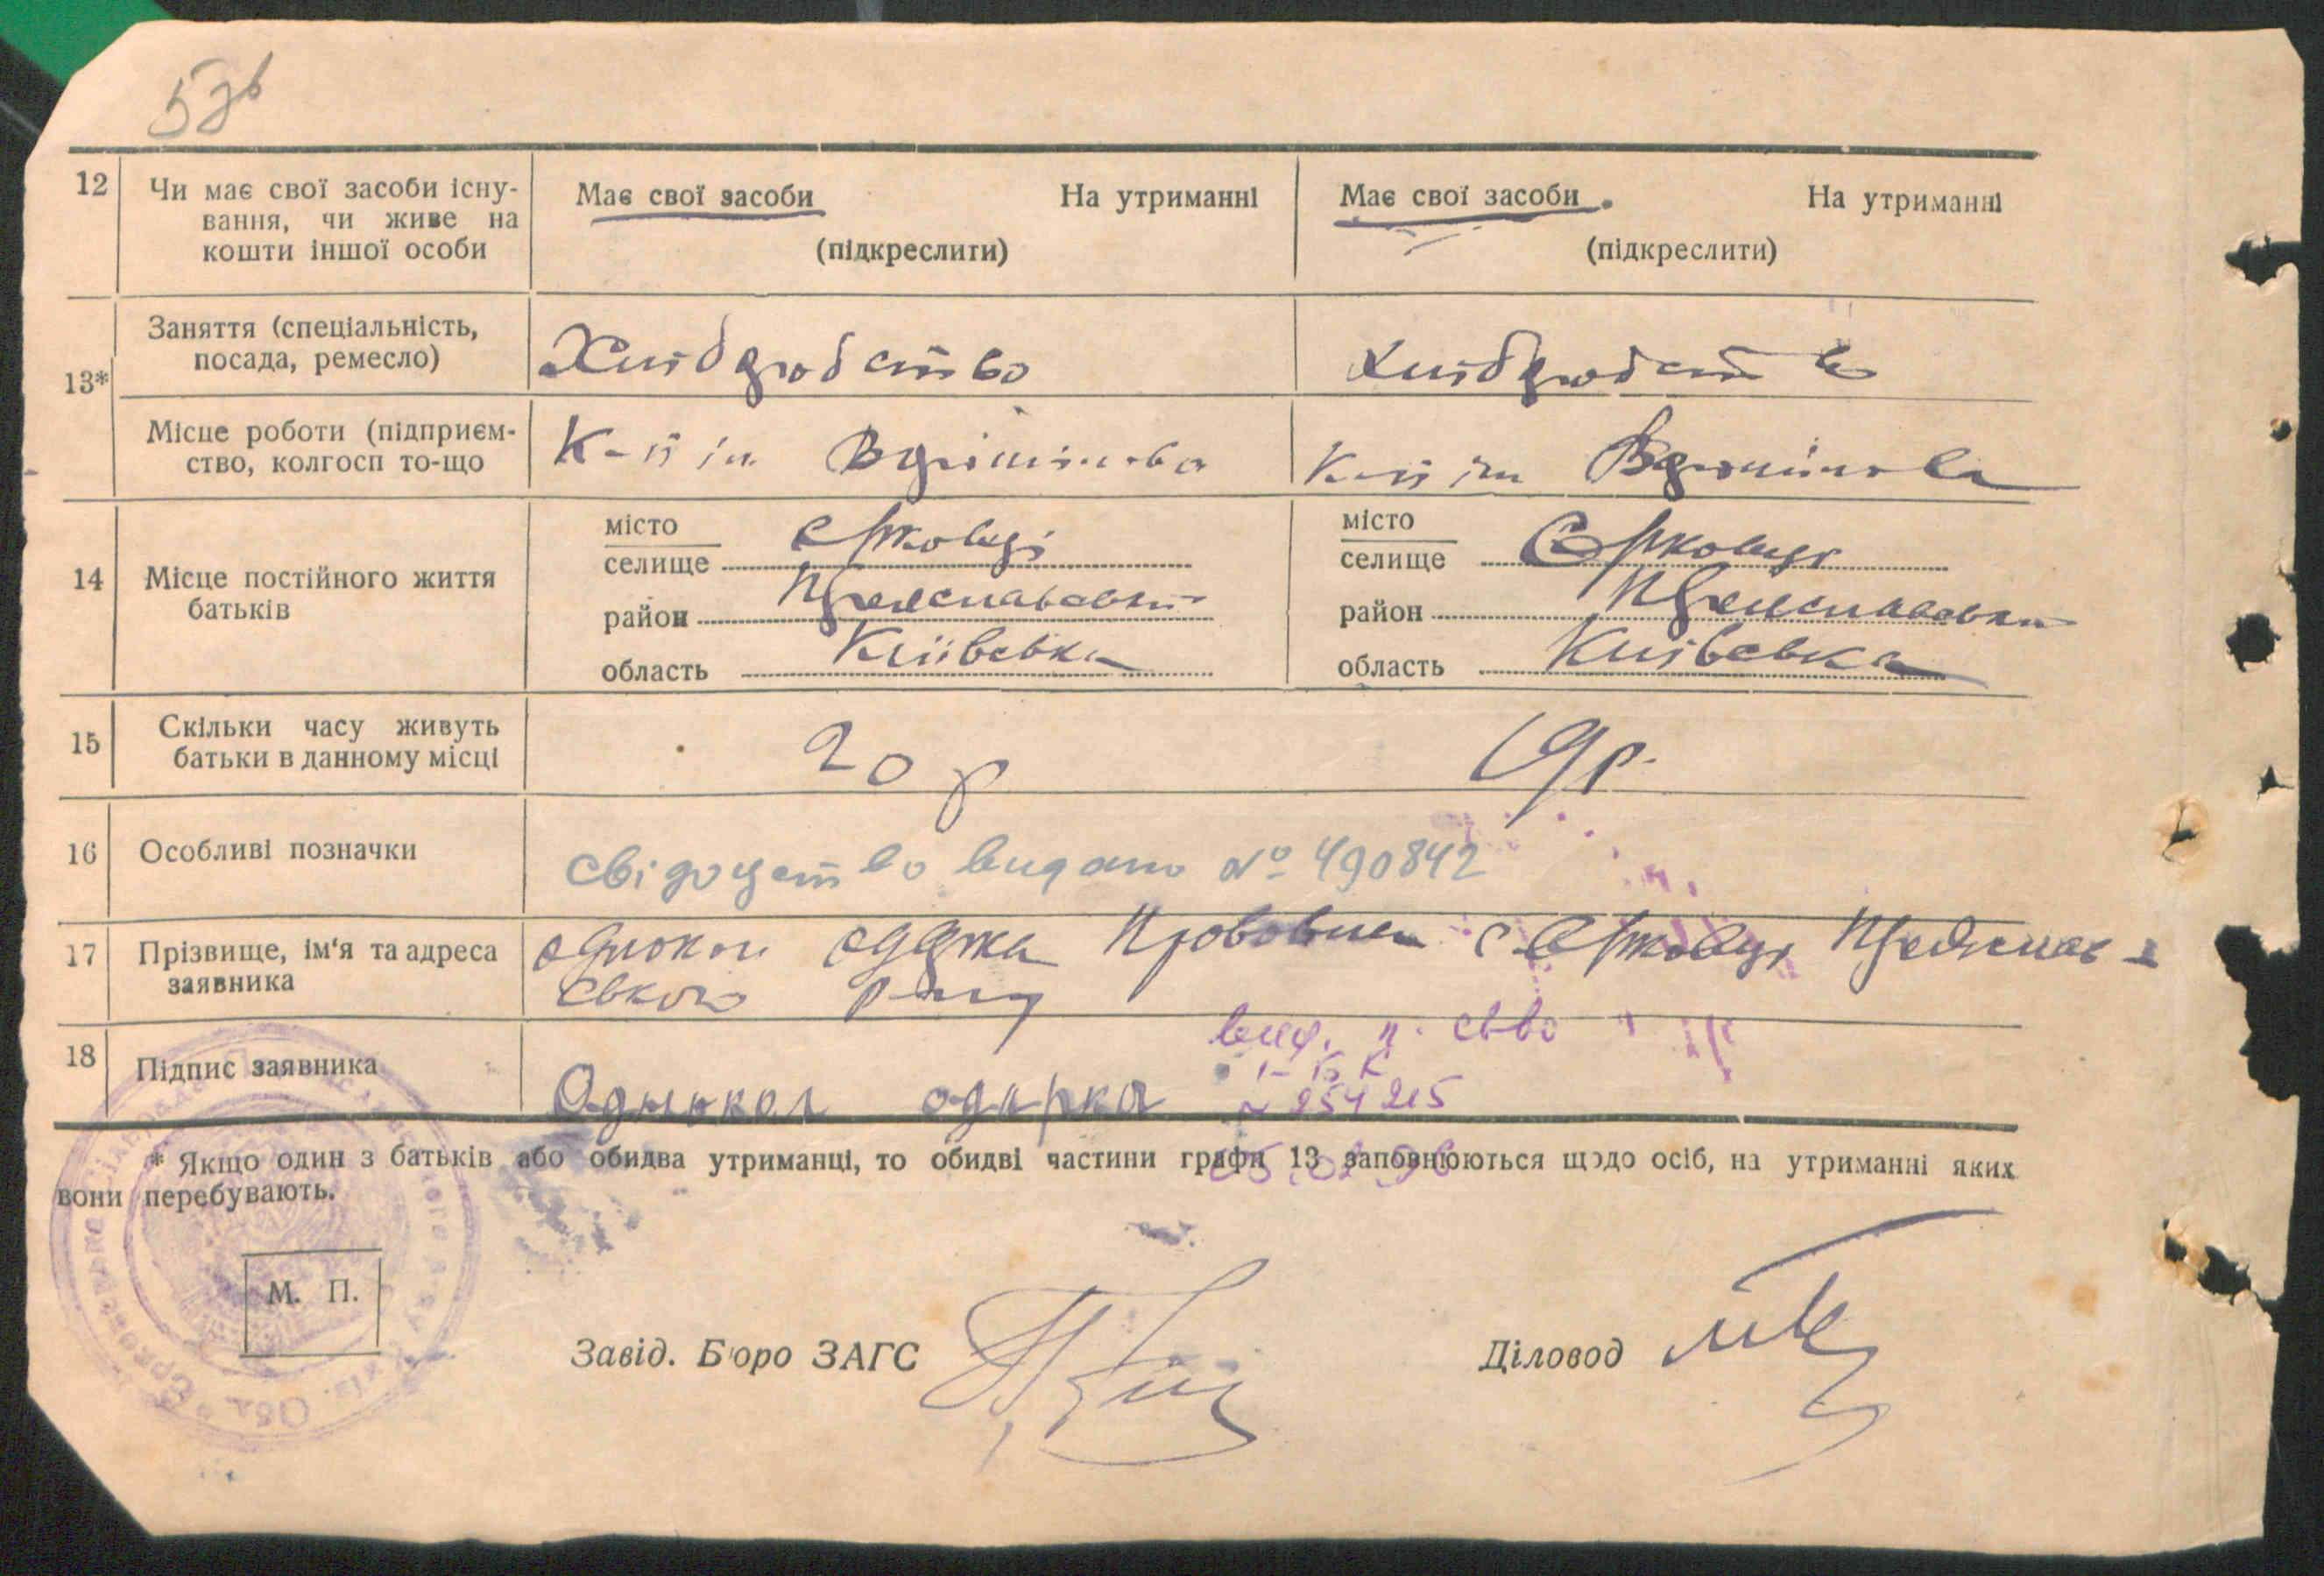 12
Чи має свої засоби існу-
вання, чи живе на
кошти іншої особи
Має свої засоби На утриманні
(підкреслити)
Має свої засоби На утриманні
(підкреслити)
13*
Заняття (спеціальність,
посада, ремесло)
Хліборобство
Хліборобство
Місце роботи (підприєм-
ство, колгосп то-що
К-п ім Ворошилова
К-п ім Ворошилова
14
Місце постійного життя
батьків
місто
селище Єрковці
район Переяславський
область Київська
місто
селище Єрковці
район Переяславський
область Київська
15
Скільки часу живуть
батьки в данному місці
20 р
19 р.
16
Особливі позначки
свідоцтво видано № 490842
17
Прізвище, ім‘я та адреса
заявника
Однокол Одарка с Єрковці Переяслав-
ського р-ну
18
Підпис заявника
Однокол одарка
вид. п. св-во
№ 254215
* Якщо один з батьків або обидва утриманці, то обидві частини графи 13 заповнюються щодо осіб, на утриманні яких
вони перебувають.
М. П.
Завід. Бюро ЗАГС
Діловод